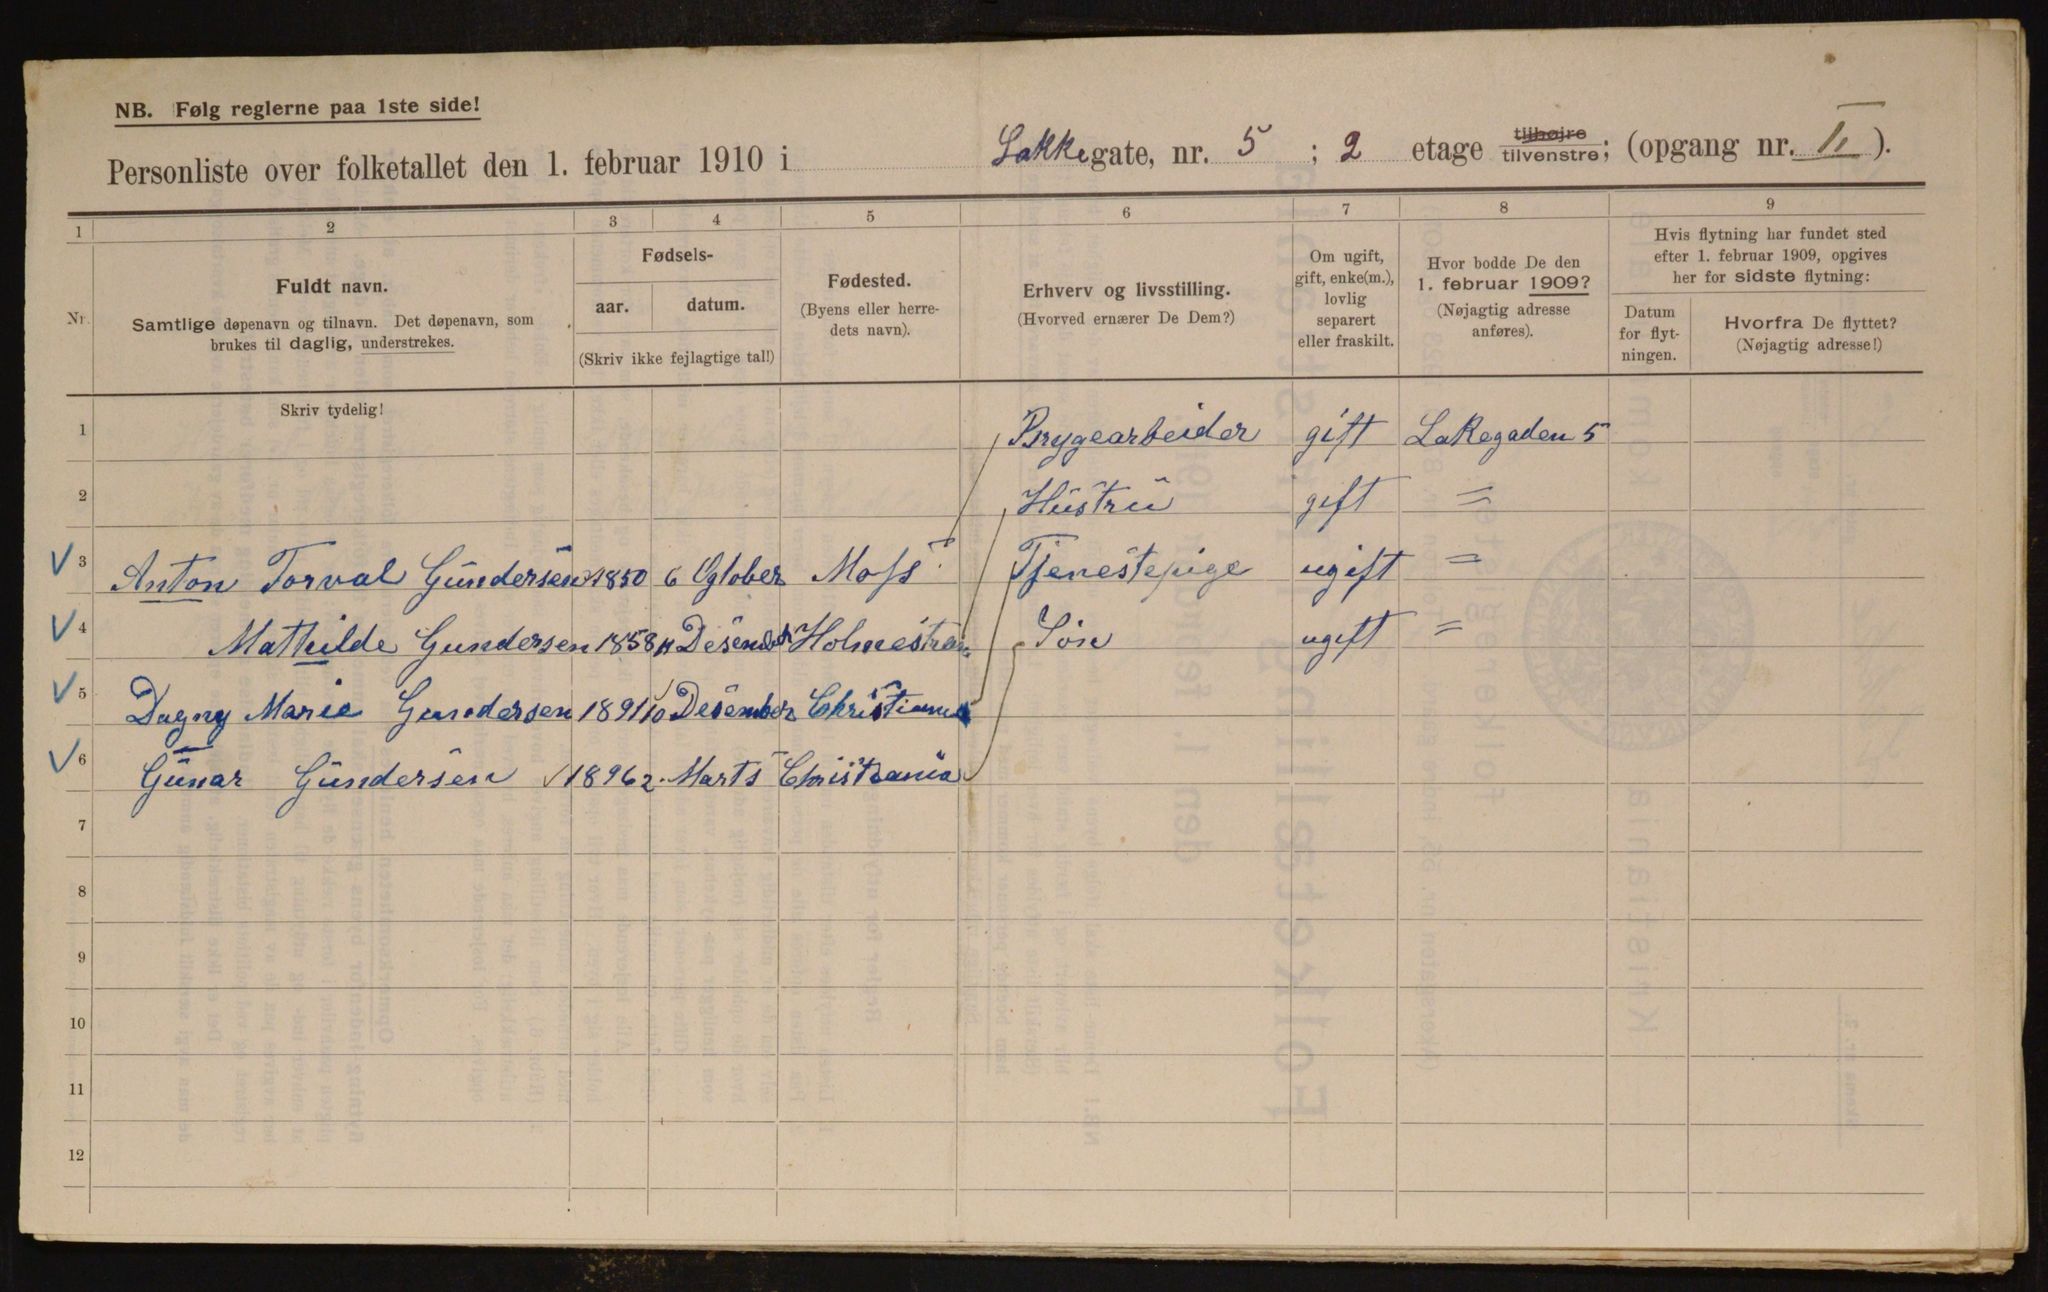 NB. Følg reglerne paa 1ste side!
Personliste over folketallet den 1. februar 1910 i Lakkegate, nr. 5 ; 2 etage tilhøjre tilvenstre; (opgang nr. II ).
1 2 3 4 5 6 7 8 9
Nr.
Fuldt navn.
Samtlige døpenavn og tilnavn. Det døpenavn, som
brukes til daglig, understrekes.
Fødsels-
aar. datum.
(Skriv ikke fejlagtige tal!)
Fødested.
(Byens eller herre-
dets navn).
Erhverv og livsstilling.
(Hvorved ernærer De Dem?)
Om ugift,
gift, enke(m.),
lovlig
separert
eller fraskilt.
Hvor bodde De den
1. februar 1909?
(Nøjagtig adresse
anføres).
Hvis flytning har fundet sted
efter 1. februar 1909, opgives
her for sidste flytning:
Datum
for flyt-
ningen.
Hvorfra De flyttet?
(Nøjagtig adresse!)
Skriv tydelig!
1 Brygearbeider gift Lakegaden 5
2 Hustru gift =
3 Anton Torval Gundersen 1850 6 Ogtober Moss Tjenestepige ugift =
4 Mathilde Gundersen 1858 Desember Holmestran Søn ugift =
5 Dagny Marie Gundersen 1891 10 Desember Christiania
6 Gunar Gundersen 1896 2. Marts Christiania
7
8
9
10
11
12